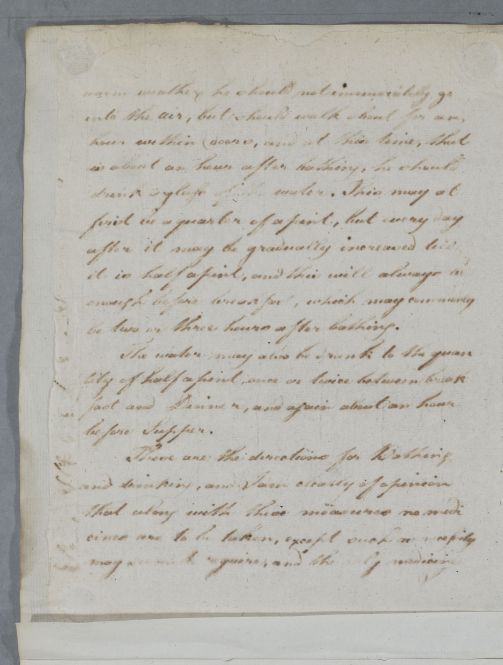 warm weather he should not immediately go
into the air, but should walk about for an
hour within doors, and at this time, that
is about an hour after bathing, he should
drink a glass of the water. This may at
first be a quarter of a pint, but every day
after it may be gradually increased till
it is half a pint, and this will always be
enough before breakfast, which may commonly
be two or three hours after bathing.
The water may also be drunk to the quan
tity of half a pint, once or twice between break
fast and Dinner, and again about an hour
before Supper.
These are the directions for Bathing
and drinking, and I am clearly of opinion
that along with these measures no medi
cines are to be taken, except such as
may require, and the only medicine